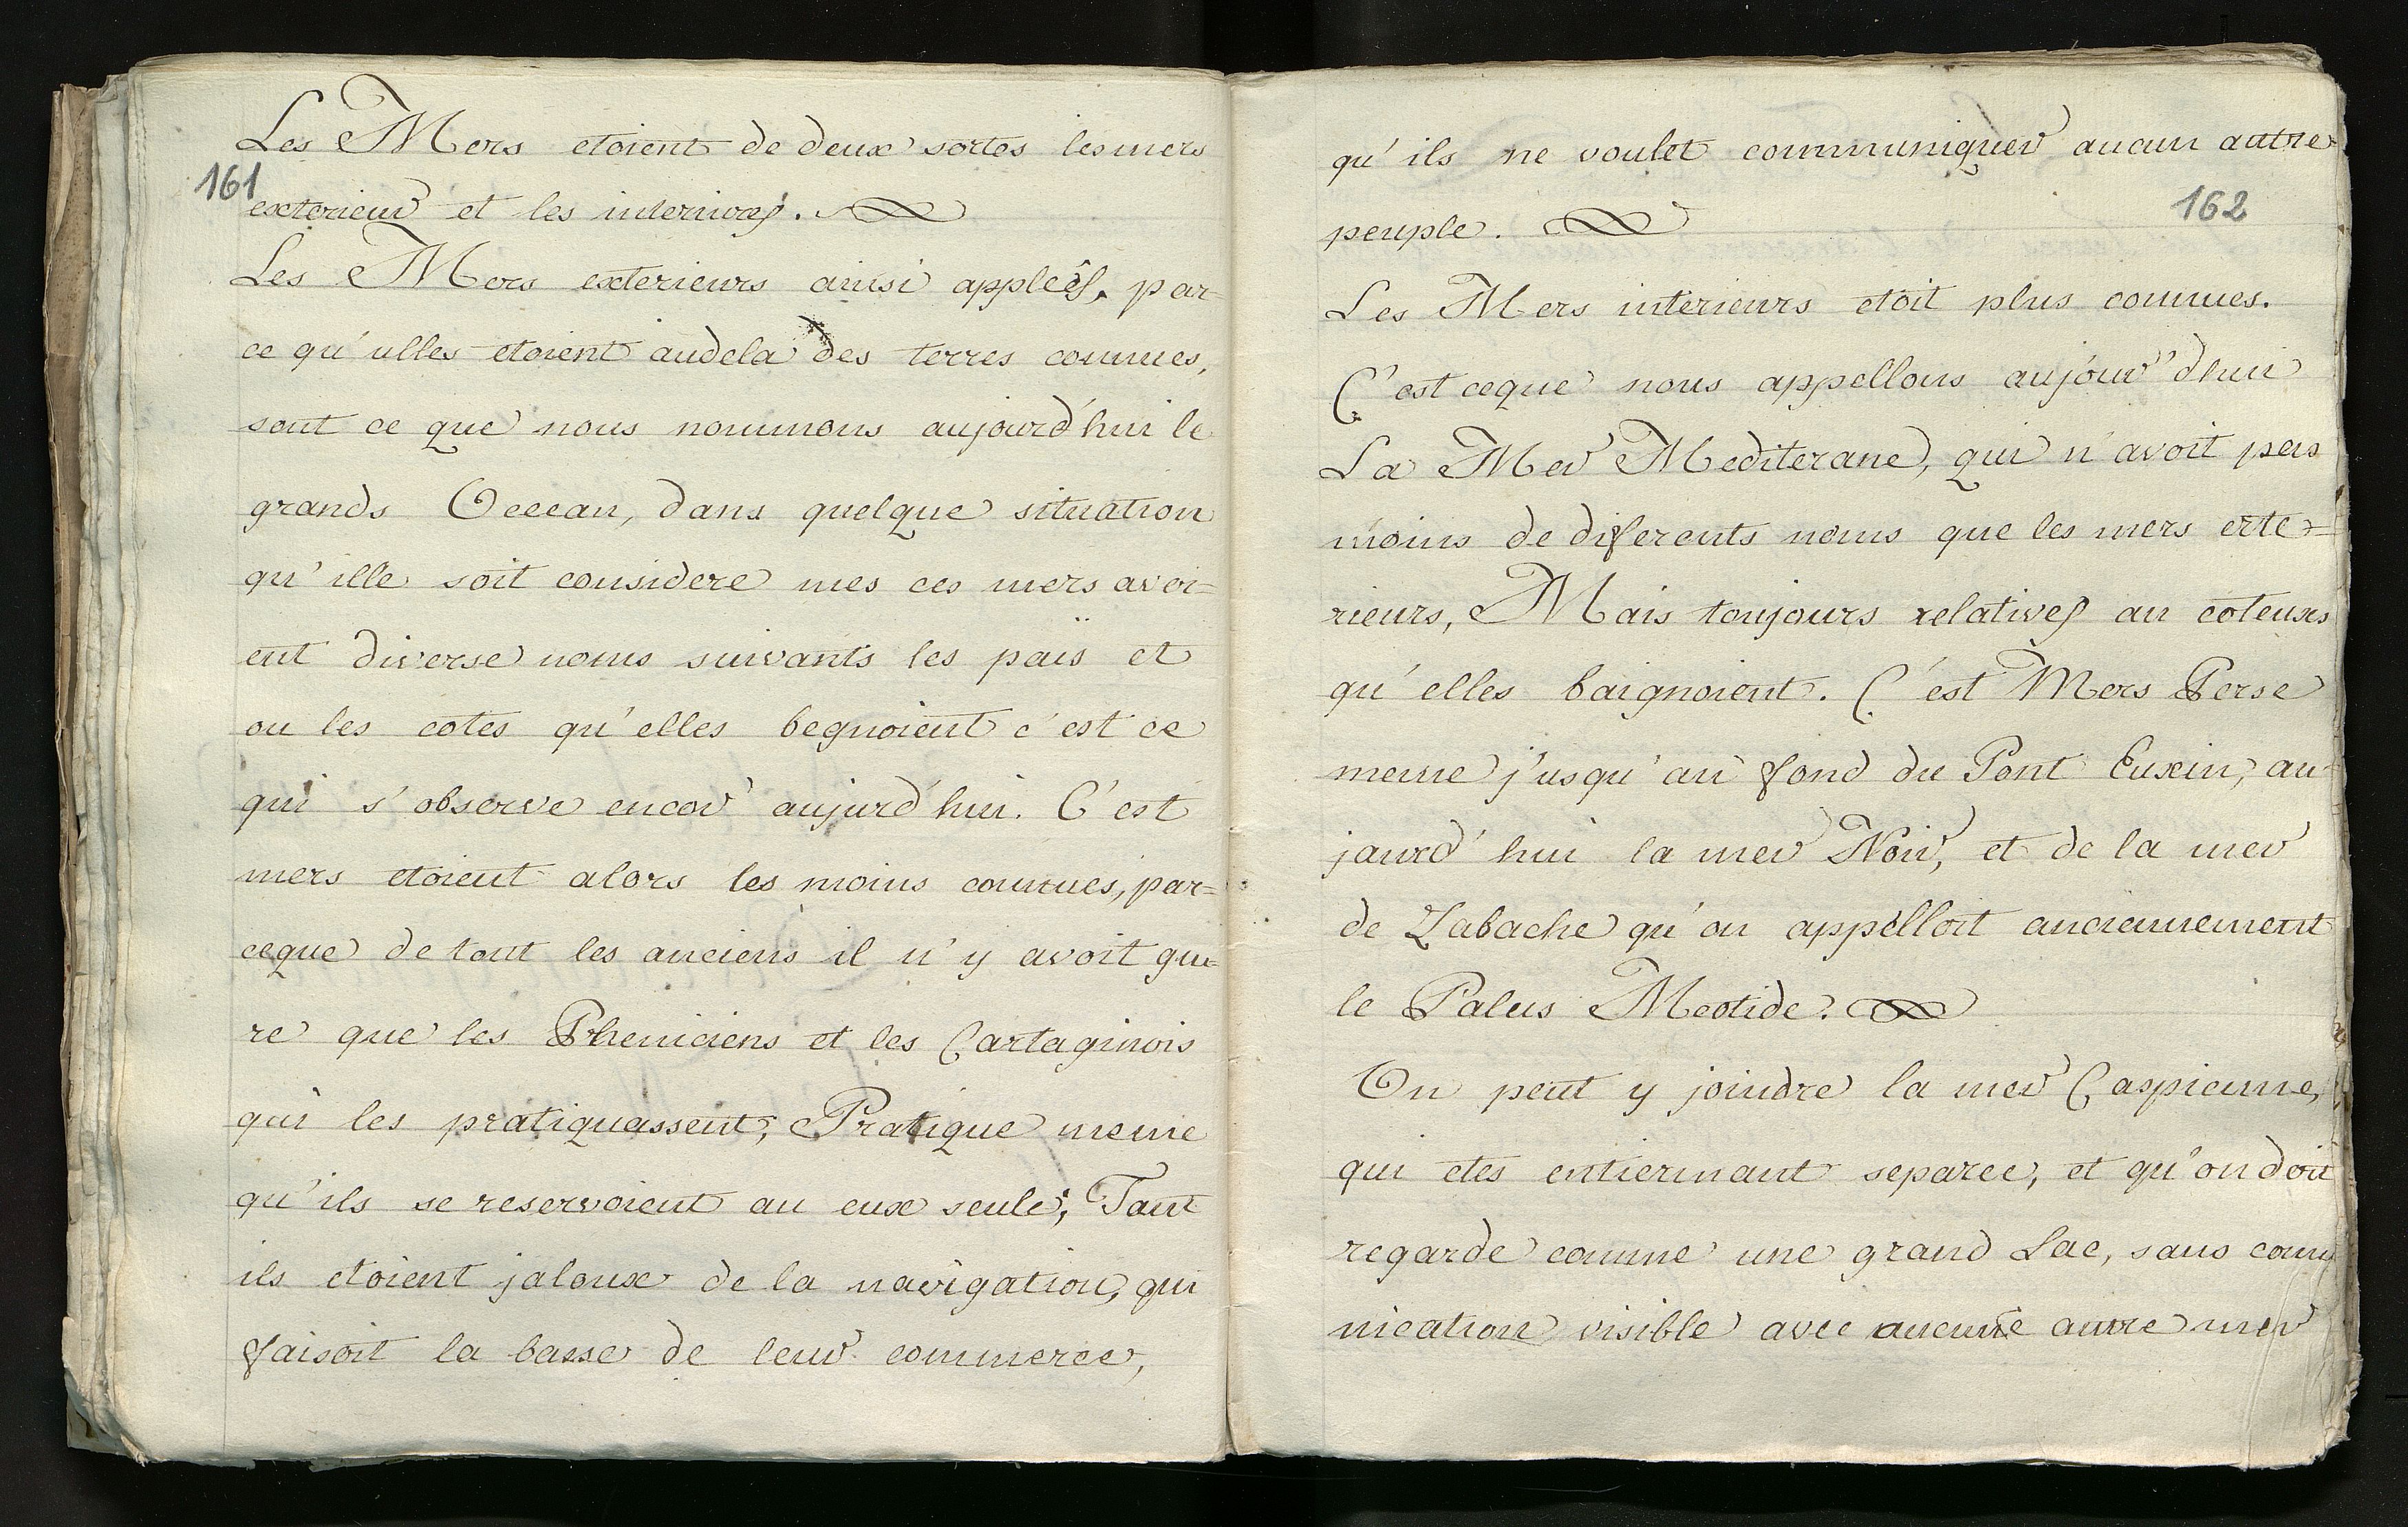 Les Mers etoient de deux sortes les mers
161
exterieur et les interiures.
Les Mers exterieurs ainsi appleés, par=
ce qu'ulles etoient audela des terres connues,
sont ce que nous nommons aujourd'hui le
grands Oceean, dans quelque situation
qu'ille soit considere mes ces mers avoi=
ent diverse noms suivants les païs et
ou les cotes qu'elles begnoient c'est ce
qui s'observe encor aujurd'hui. C'est
mers etoient alors les moins connues, par=
ceque de tout les anciens il n'y avoit gue=
re que les Pheniciens et les Cartaginois
qui les pratiquassent; Pratique meme
qu'ils se reservoient au eux seule; Tant
ils etoient jaloux de la navigation, qui
faisoit la basse de leur commerce,
qu'ils ne voulet communiquer aucun autre
162
peuple.
Les Mers interieurs etoit plus connues.
C'est ceque nous appellons aujour'dhui
La Mer Mediterane, qui n'avoit pas
moins de diferents noms que les mers exte=
rieurs, Mais toujours relatives au coteuxs
qu'elles baignoient. C'est Mers Perse
meme j'usqu'au fond du Pont Euxin, au=
jaurd'hui la mer Noir, et de la mer
de Zabache qu'on appelloit anciennement
le Palus Meotide.
On peut y joindre la mer Caspienne,
qui etes entiermant separee, et qu'on doit
regarde comme une grand Lac, sans comu
nication visible avec aucune autre mer